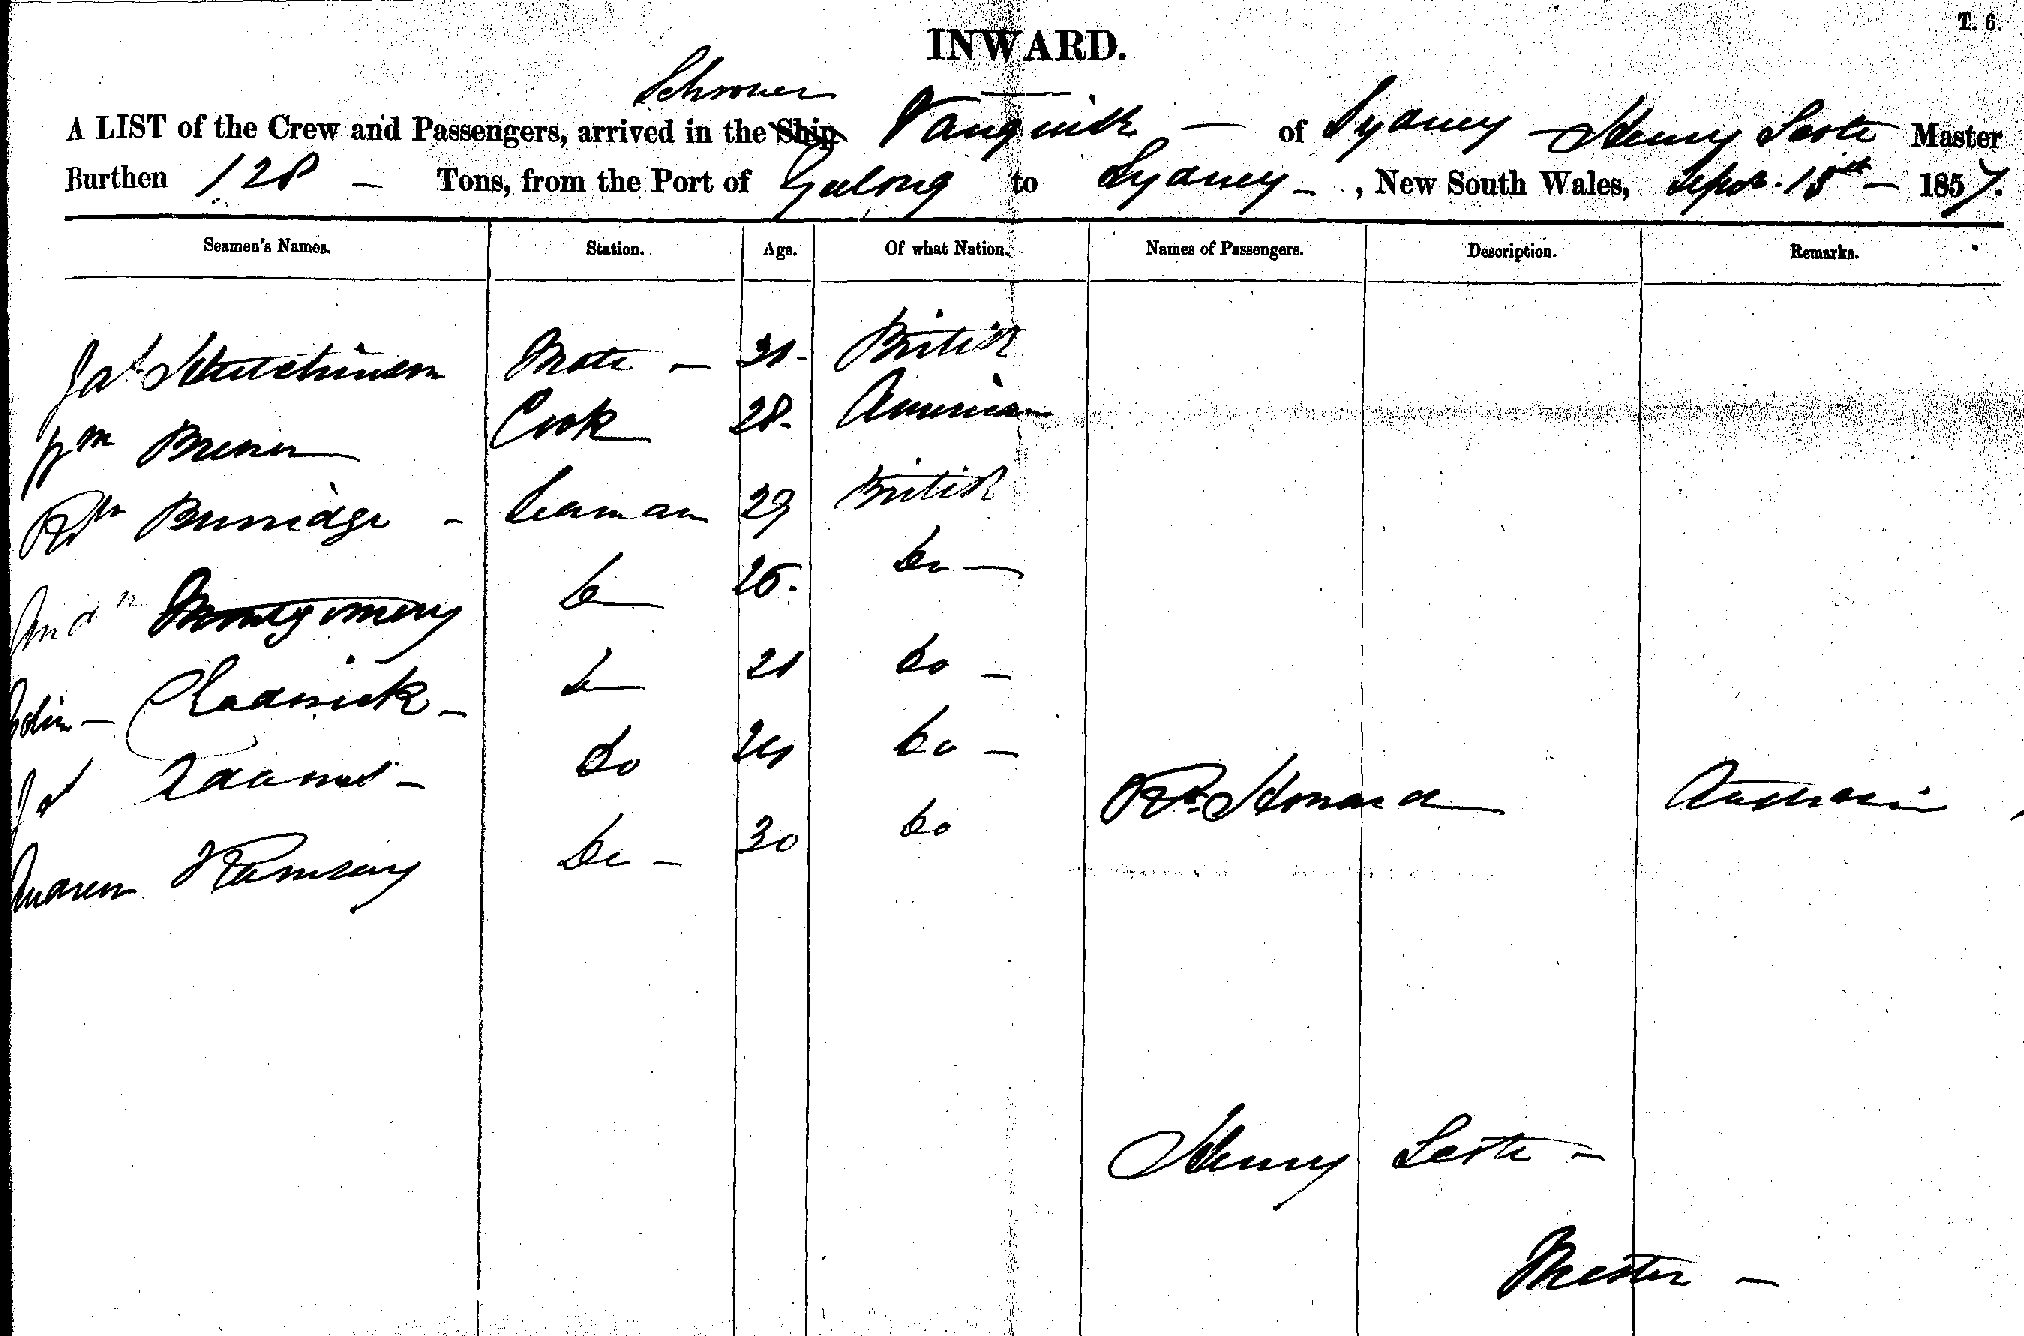 T. 6.
INWARD.
Schooner
A LIST of the Crew and Passengers, arrived in the Ship Vanquish — of Sydney — Henry Master
Burthen 128 — Tons, from the Port of Geelong to Sydney — , New South Wales, Septr. 15th — 1857.
Seamen's Names. Station. Age. Of what Nation. Names of Passengers. Description. Remarks.
Jas Hutchinson Mate — 31- British
Wm Cook 28- American
Burridge - Seaman 29 British
Andw Montgomery Do 25. Do —
John — Chadwick - Do 21 Do -
Jas Adams - Do 24 Do -
Andrew Ramsay Do - 30 Do
Howard
Henry
Master —